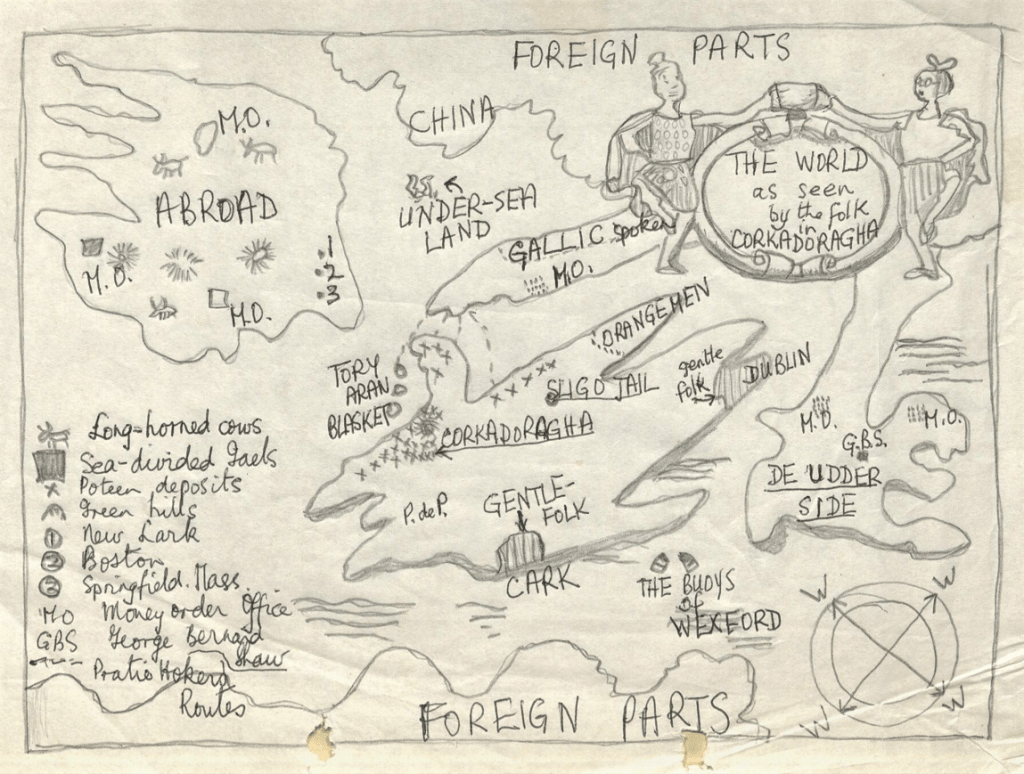 FOREIGN PARTS
CHINA
M.O.
ABROAD
M.O.
M.O.
1
2
3
UNDER-SEA
LAND
GALLIC spoken
M.O.
THE WORLD
as seen
by the folk
in
CORKADORAGHA
ORANGEMEN
TORY
ARAN
BLASKET
SLIGO JAIL
gentle
folk
DUBLIN
CORKADORAGHA
P. de P.
GENTLE-
FOLK
CARK
M.O.
M.O.
G.B.S.
DE UDDER
SIDE
THE BUOYS
of
WEXFORD
W
W
W
W
Long-horned cows
Sea-divided Gaels
Poteen deposits
Green hills
1 New Lark
2 Boston
3 Springfield. Mass.
MO Money order Office
GBS George Bernard
Shaw
Pratie Hokers
Routes
FOREIGN PARTS